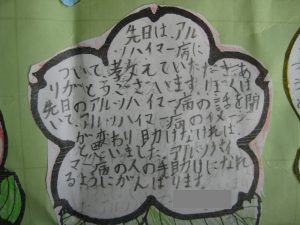 先日は、アル
ツハイマー病に
ついて、教えていただきあ
りがとうございます。ぼくは
先日のアルツハイマー病の話を聞
いて、アルツハイマー病の
が変わり助けなければ
と思いました。アルツハイ
マー病の人の手助けになれ
るようにがんばります。